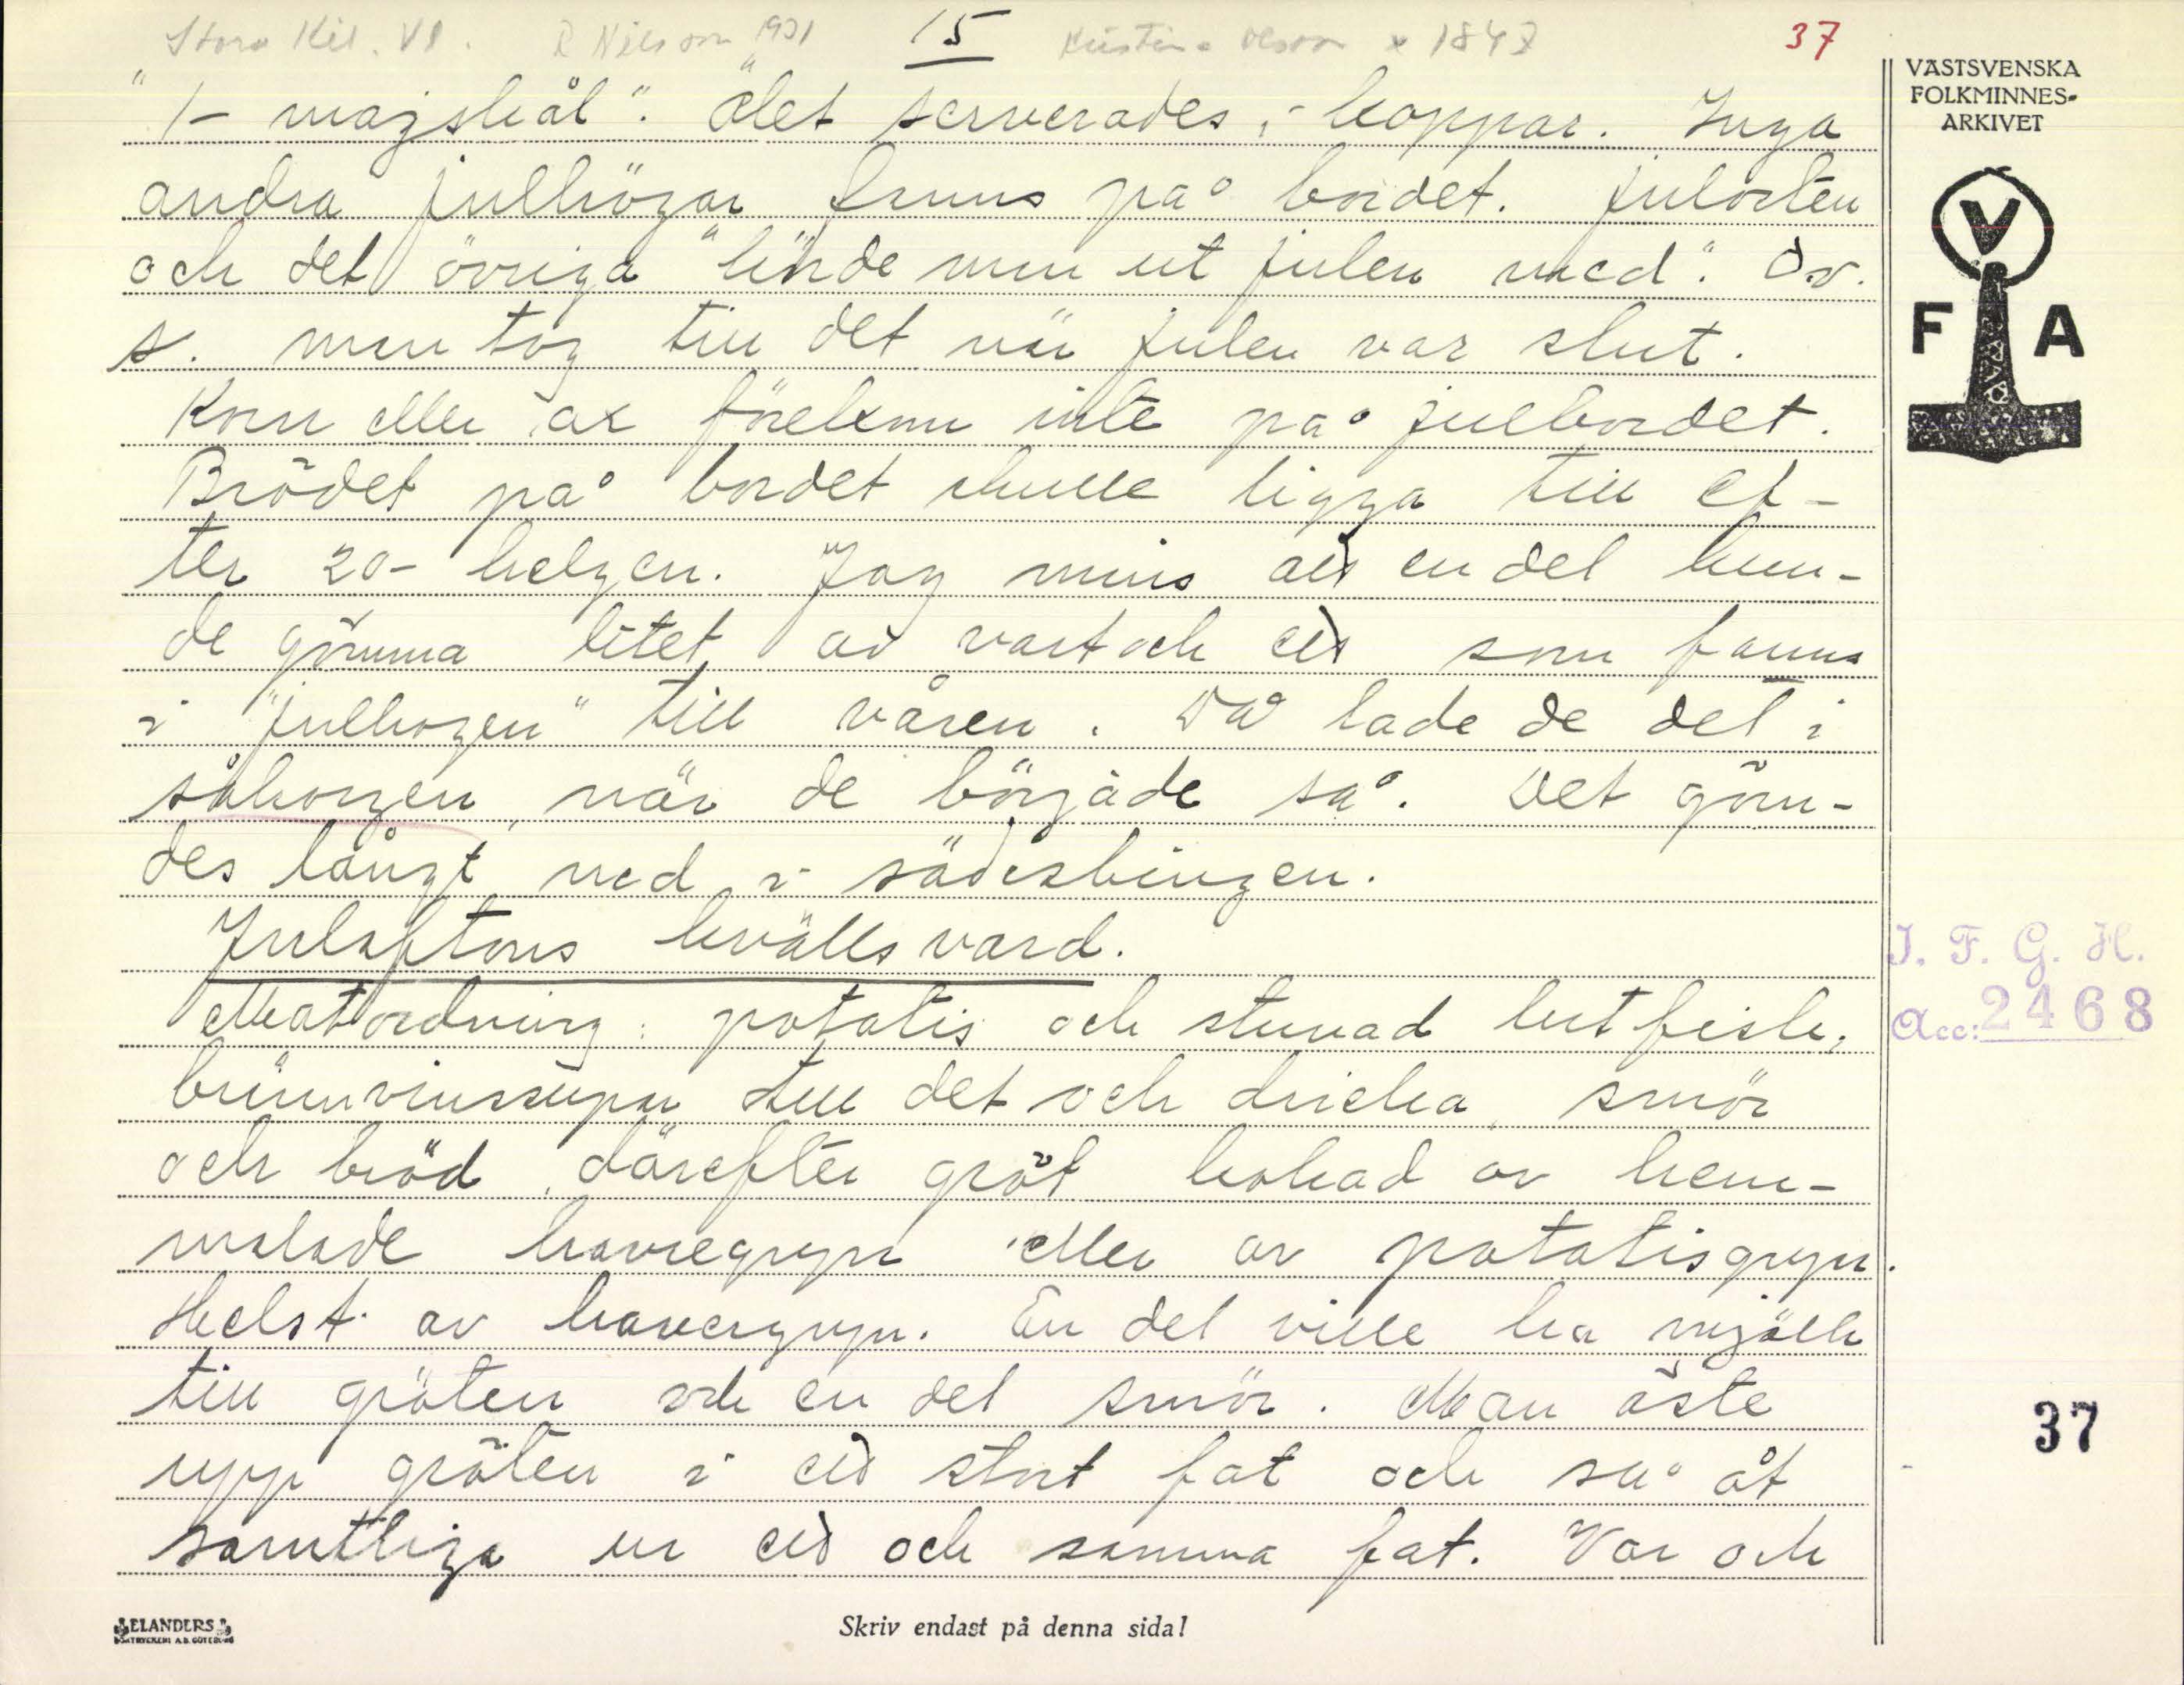 Stora Kil. Vl. R Nilsson 1931 15 Kristina Olsson x 1847 37
"1-majskål". Ölet serverades i koppar. Inga
andra julhögar fanns på bordet. Julosten
och det övriga "körde man ut julen med". D.v.
s. man tog till det när julen var slut.
Korn eller ax förekom inte på julbordet.
Brödet på bordet skulle ligga till ef-
ter 20-helgen. Jag minns att en del kun-
de gömma litet av vart och ett som fanns
i "julhogen" till våren. Då lade de det i
såkorgen, när de började så. Det göm-
des långt ned i sädesbingen.
Julaftons kvällsvard.
Matordning: potatis och stuvad lutfisk,
brännvinssupar till det och dricka, smör
och bröd, därefter gröt kokad av hem-
malade havregryn eller av potatisgryn.
Helst av havregryn. En del ville ha mjölk
till gröten och en del smör. Man öste
upp gröten i ett stort fat och så åt
samtliga ur ett och samma fat. Var och
VÄSTSVENSKA
FOLKMINNES-
ARKIVET
V
F A
I. F. G. H.
Acc: 2468
37
ELANDERS
BOKTRYCKERI A.B. GÖTEBORG
Skriv endast på denna sida!